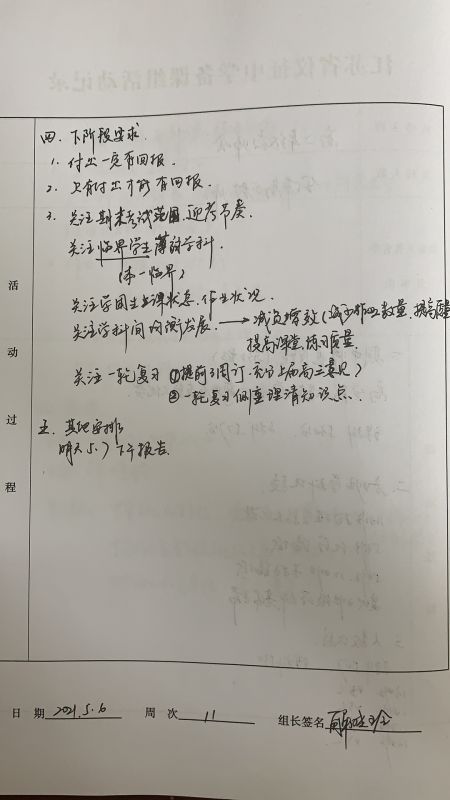 四、下阶段要求
1. 付出一定有回报.
2. 只有付出才能有回报.
3. 关注期末考试范围,迎考节奏.
关注临界学生薄弱学科.
(本一临界)
关注学困生上课状态,作业状况.
关注学科间均衡发展. → 减负增效(减少作业数量,提高质量
提高课堂练习质量
关注一轮复习 ①提前引用订,充分上届高三意见)
②一轮复习侧重理清知识点.
五、其他安排
明天5.7下午报告.
活
动
过
程
日 期 2021.5.6 周 次 11 组长签名